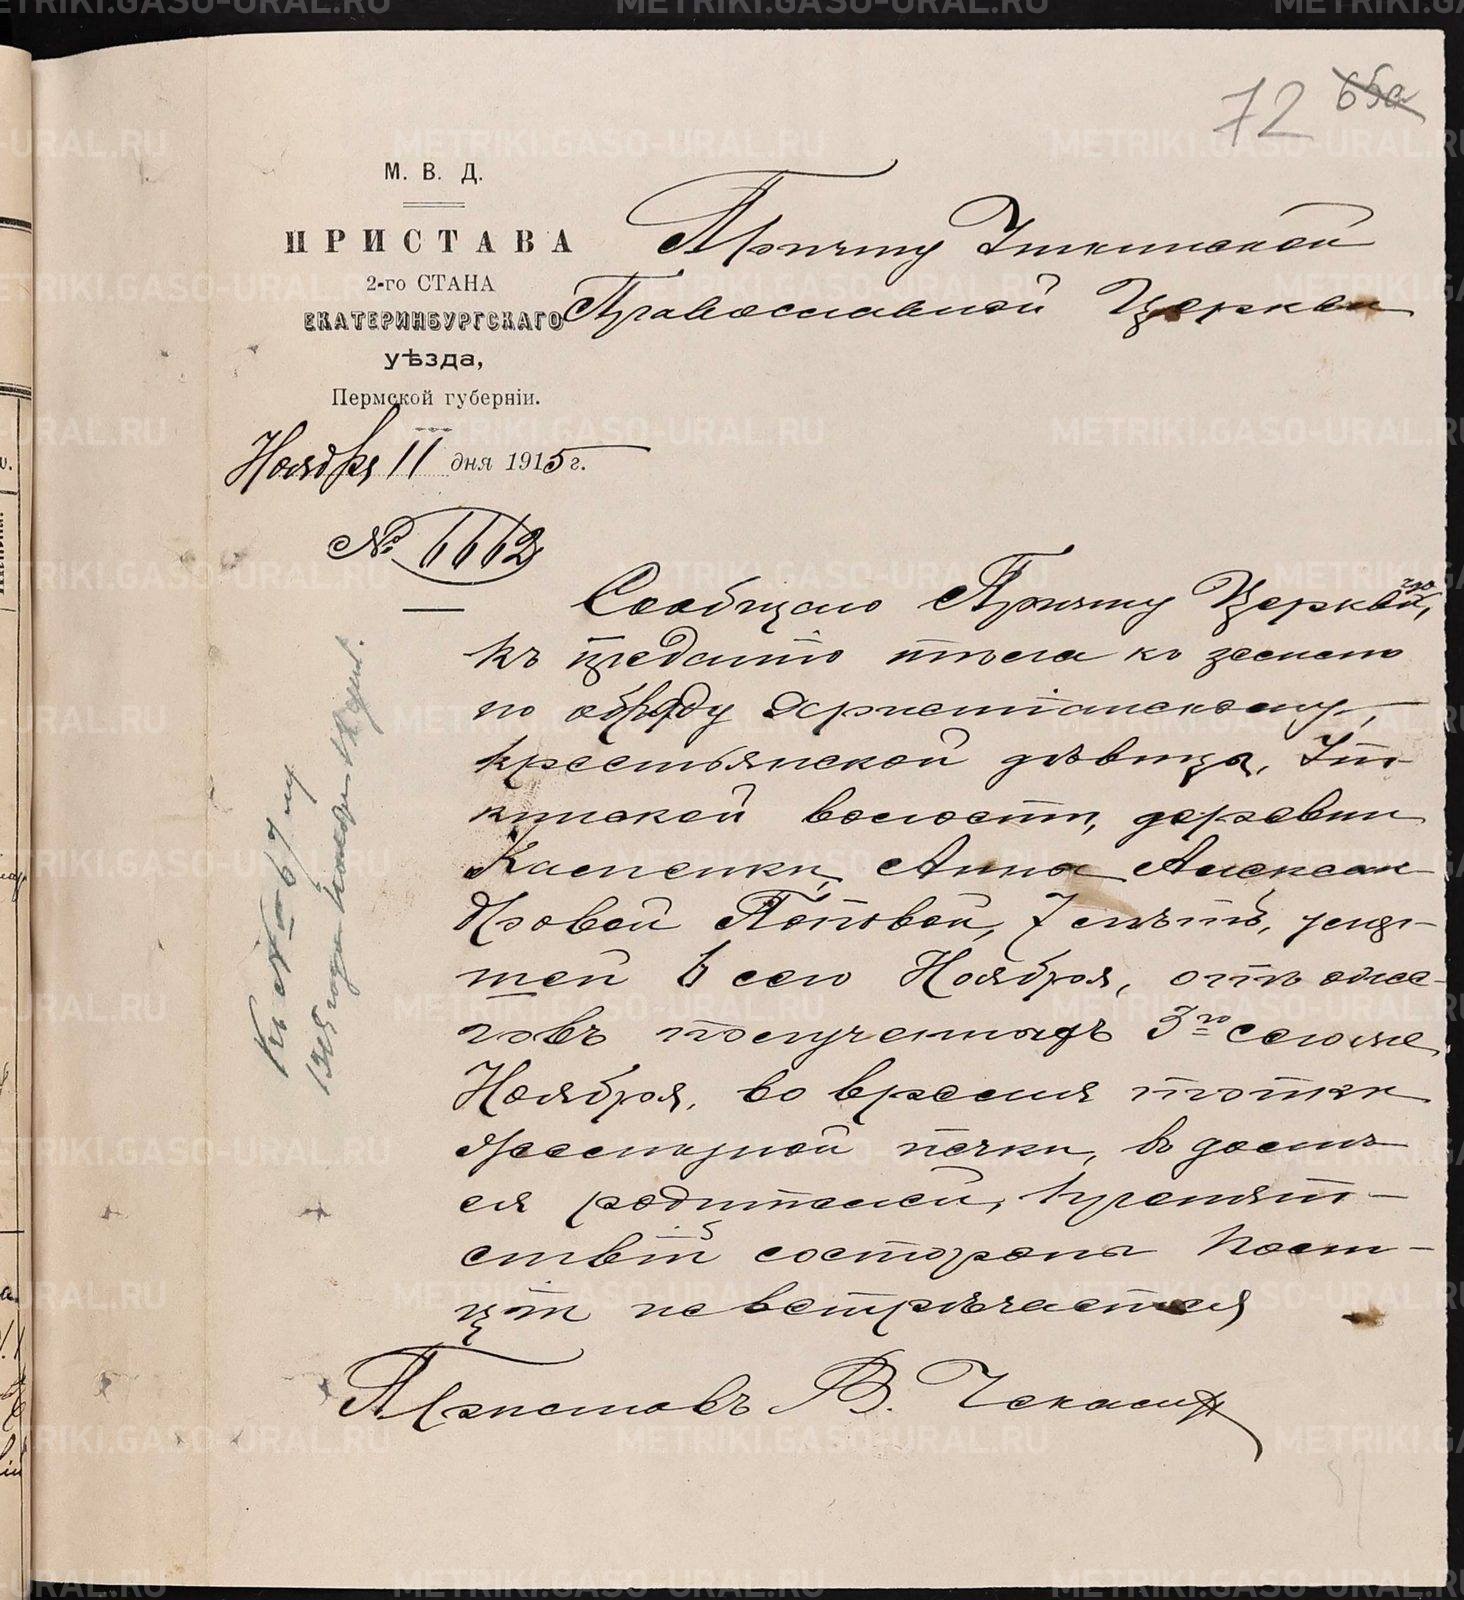 72 65а
М. В. Д.
ПРИСТАВА
2-го СТАНА
ЕКАТЕРИНБУРГСКАГО
уѣзда,
Пермской губерніи.
Ноября 11 дня 1915 г.
№ 6662
Причту Уткинской
Православной Церкви
Сообщаю Причту Церкви,
къ преданію тѣла къ землѣ
по обряду христіанскому,
крестьянской дѣвицы, Ут-
кинской волости, деревни
Каменки, Анны Алексан
дровой Поповой, 7 лѣтъ, умер-
шей 6 сего Ноября, отъ ожо-
говъ полученныхъ 3го сего же
Ноября, во время топки
желѣзной печки, въ домѣ
ея родителей, препят-
ствій состороны Поли-
ціи не встрѣчается
Приставъ В.
Къ № 67 му
1915 года
METRIKI.GASO-URAL.RU